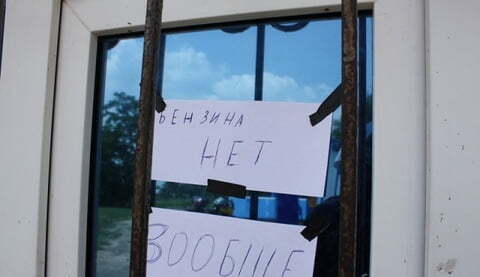 БЕНЗИНА
НЕТ
ВООБЩЕ